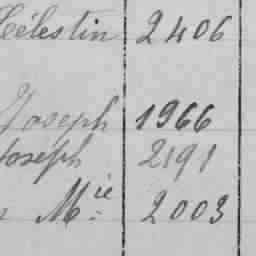 Célestin 2406
Joseph 1966
Joseph 2191
Mie 2003